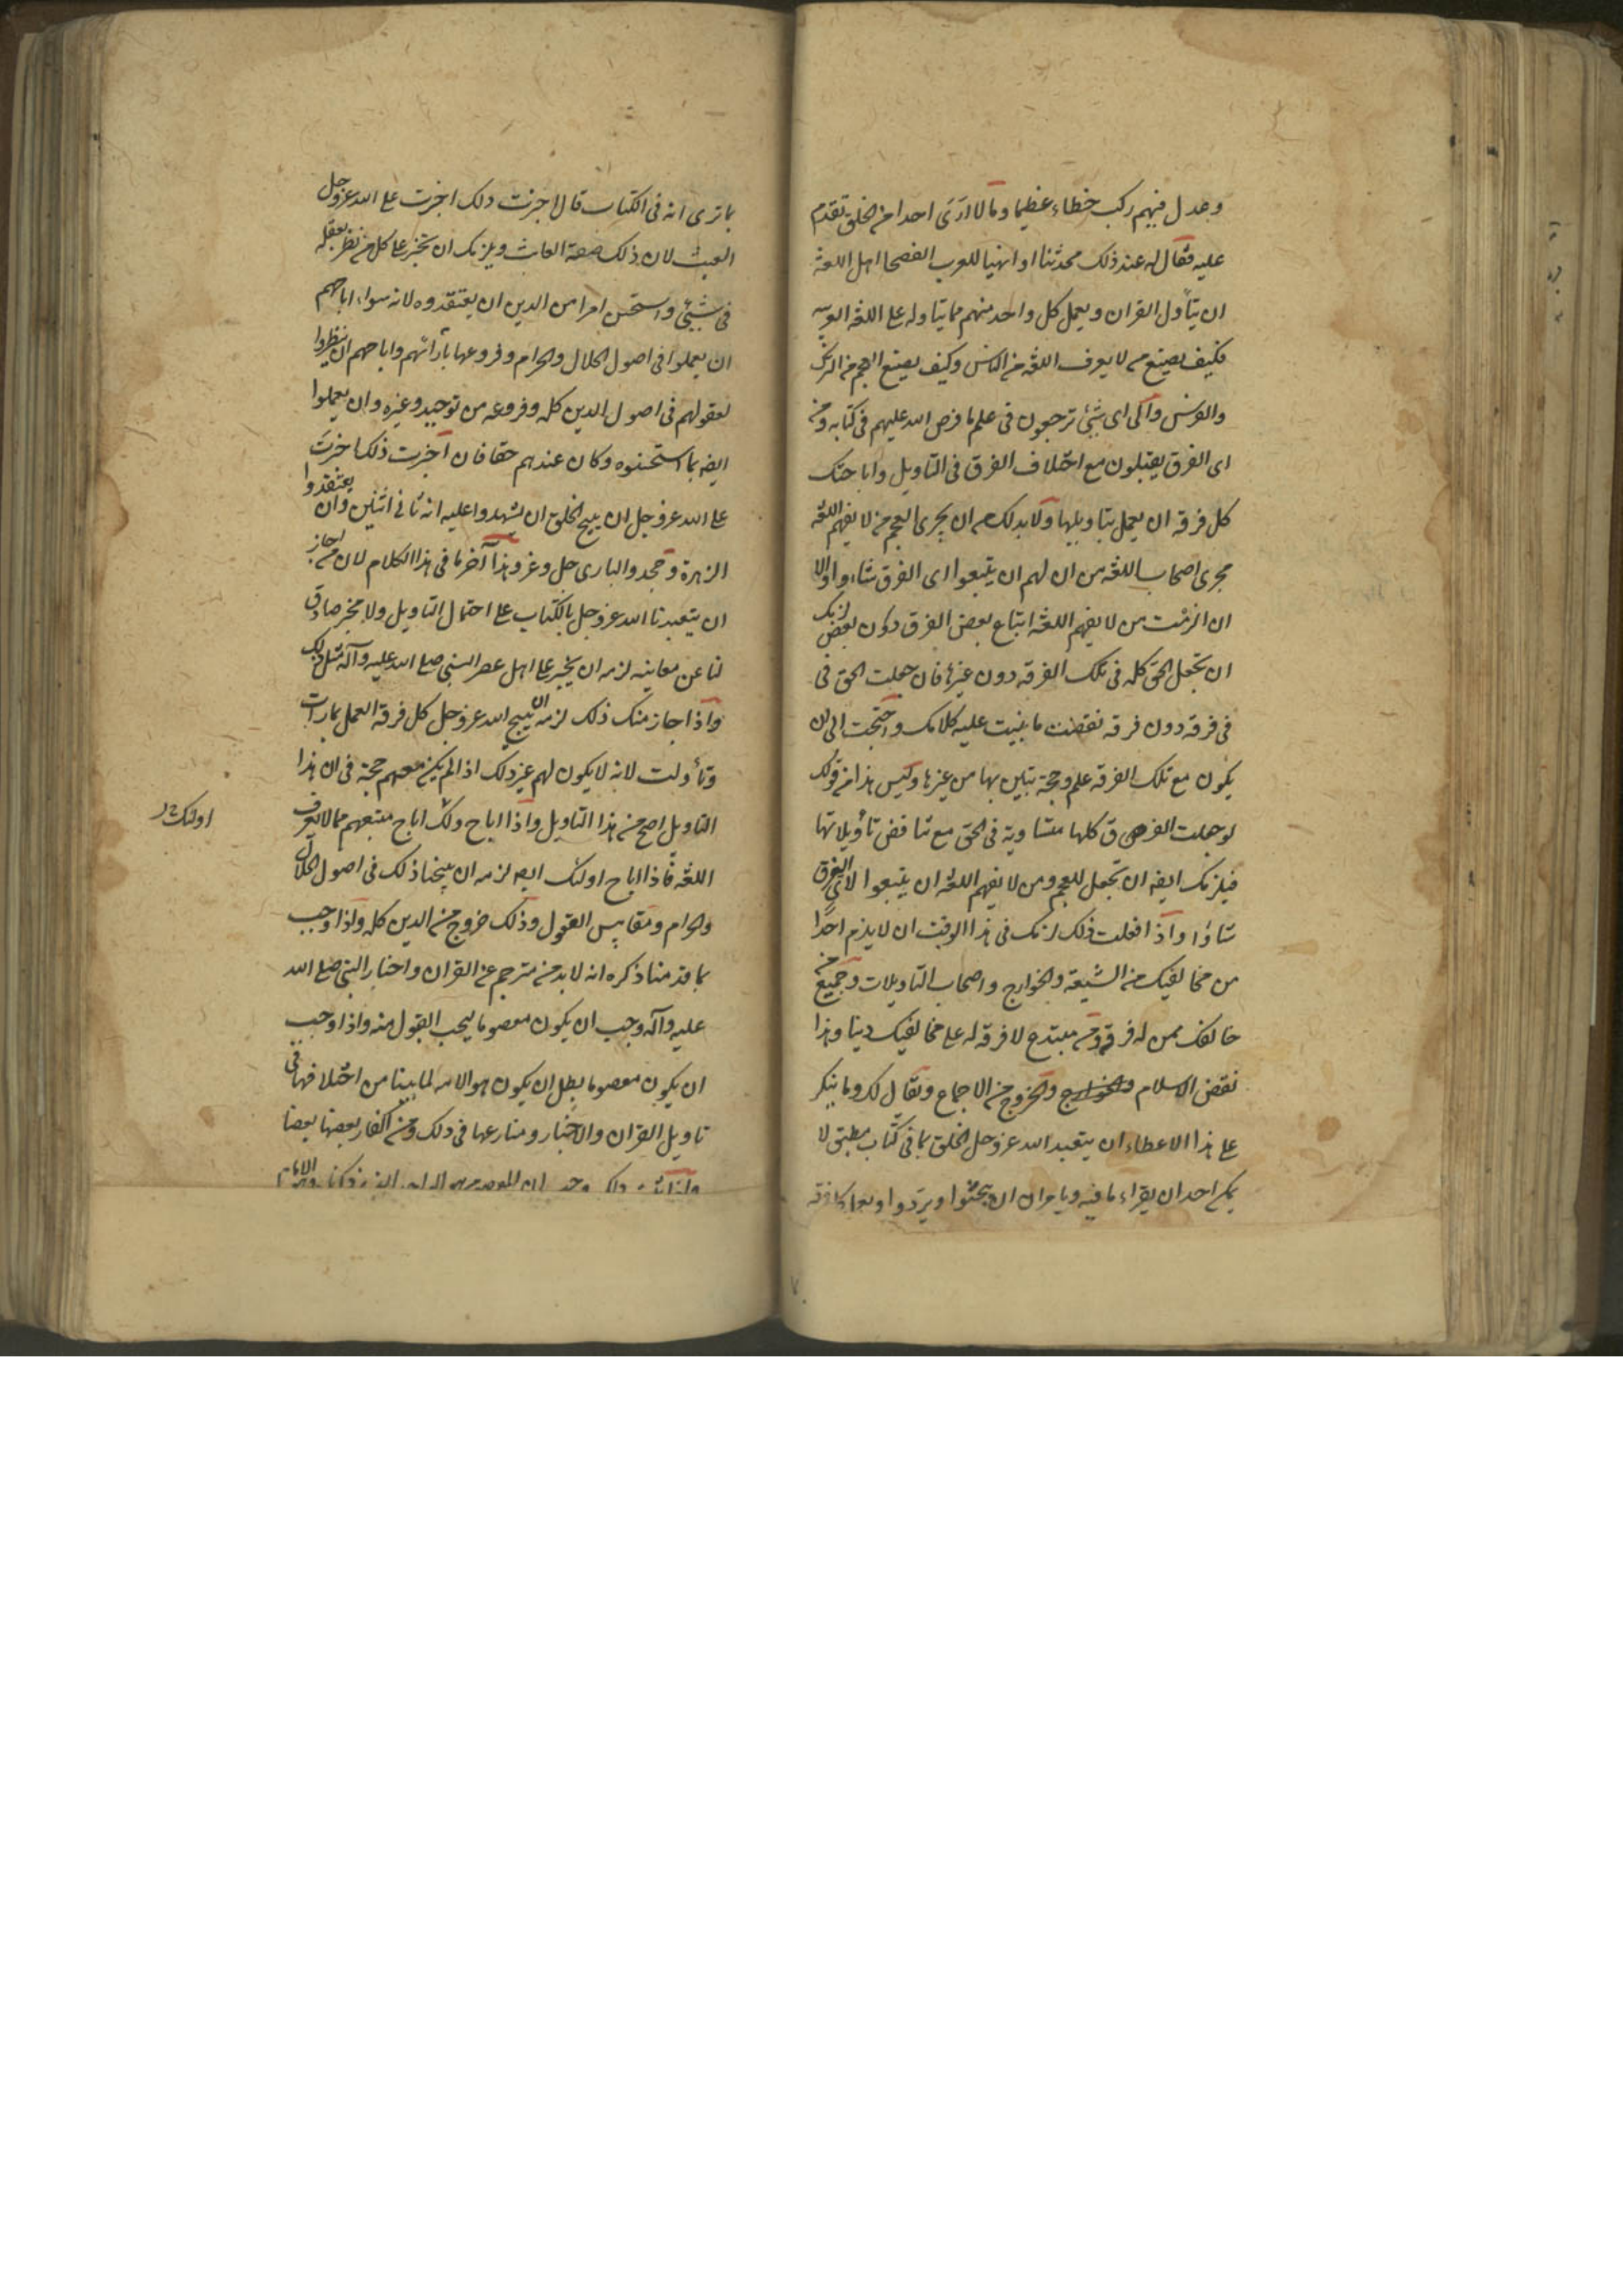 وعدل فيهم ركب خطاء عظيما وما لا ارى احدا من الخلق تقدم
عليه فقال له عند ذلك محدثنا او انهيا للعرب الفصحا اهل اللغة
ان يتأول القران ويعمل كل واحد منهم مما يتاوله على اللغة العربيه
فكيف يصنع من لا يعرف اللغة من الناس وكيف يصنع العجم من الترك
والفرس والى اى شئ ترجعون فى علم ما فرض الله عليهم فى كتابه ومن
اى الفرق يقبلون مع اختلاف الفرق فى التاويل واباحتك
كل فرقه ان يعمل بتاويلها ولا بد لك من ان يجرى العجم من لا يفهم اللغه
مجرى اصحاب اللغه من ان لهم ان يتبعوا اى الفرق شاءوا والا
ان الزمت من لا يفهم اللغة اتباع بعض الفرق دون بعض لزمك
ان تجعل الحق كله فى تلك الفرقه دون غيرها فان جعلت الحق فى
فى فرقه دون فرقه نقضت ما بنيت عليه كلامك واحتجت الى ان
يكون مع تلك الفرقه علم وحجة تبين بها من غيرها وليس هذا من قولك
لو جعلت الفرق كلها متساوية فى الحق مع تناقض تأويلاتها
فيلزمك ايضه ان تجعل للعجم ومن لا يفهم اللغه ان يتبعوا لاى الفرق
شاؤا واذا فعلت ذلك لزمك فى هذا الوقت ان لا يذم احدا
من مخالفيك من الشيعة والخوارج واصحاب التاويلات وجميع من
خالفك ممن له فرقة ومن مبتدع لا فرقه له على مخالفيك دينا وهذا
نقض الاسلام والخروج من الاجماع ويقال لك وما ينكر
على هذا الاعطاء ان يتعبد الله عز وجل الخلق بما فى كتاب مطبق لا
يمكن احد ان يقراء ما فيه ويامر ان ان يبحثوا ويردوا ويعمل كل فرقه
بما ترى انه فى الكتاب قال اجزت ذلك اجزت على الله عز وجل
العبث لان ذلك صفة العابث ويلزمك ان تجيز على كل من نظر بعقله
فى شئ واستحسن امرا من الدين ان يعتقدوه لانه سواء اباحهم
ان يعملوا فى اصول الحلال والحرام وفروعها بآرائهم واباحهم ان ينظروا
بعقولهم فى اصول الدين كله وفروعه من توحيد وغيره وان يعملوا
ايضه بما استحسنوه وكان عندهم حقا فان اجزت ذلك اجزت
على الله عز وجل ان يبيح الخلق ان يشهدوا عليه انه ثانى اثنين وان يعتقدوا
الزهرة وجحدوا البارى جل وعز وهذا آخر ما فى هذا الكلام لان من اجاز
ان يتعبدنا الله عز وجل بالكتاب على احتمال التاويل ولا مخبر صادق
لنا عن معانيه لزمه ان يجيز على اهل عصر النبى صلى الله عليه وآله مثل ذلك
واذا اجاز مثل ذلك لزمه ان يبيح الله عز وجل كل فرقه العمل بما رات
وتأولت لانه لا يكون لهم غير ذلك اذا لم يكن معهم حجة فى ان هذا
التاويل اصح من هذا التاويل واذا اباح ذلك اباح متبعهم ممن لا يعرف
اولئك
اللغه فاذا اباح اولئك ايضه لزمه ان يبيحنا ذلك فى اصول الحلال
والحرام ومقاييس العقول وذلك خروج من الدين كله واذا وجب
بما قدمنا ذكره انه لا بد من مترجم عن القران واخبار النبى صلى الله
عليه وآله وجب ان يكون معصوما ليجب القبول منه واذا وجب
ان يكون معصوما بطل ان يكون هو الامه لما بينا من اختلافها فى
تاويل القران والاخبار وتنازعها فى ذلك ومن اكفار بعضها بعضا
واذا ثبت ذلك وجب ان المعصوم هو الواحد الذى ذكرناه وهو الامام